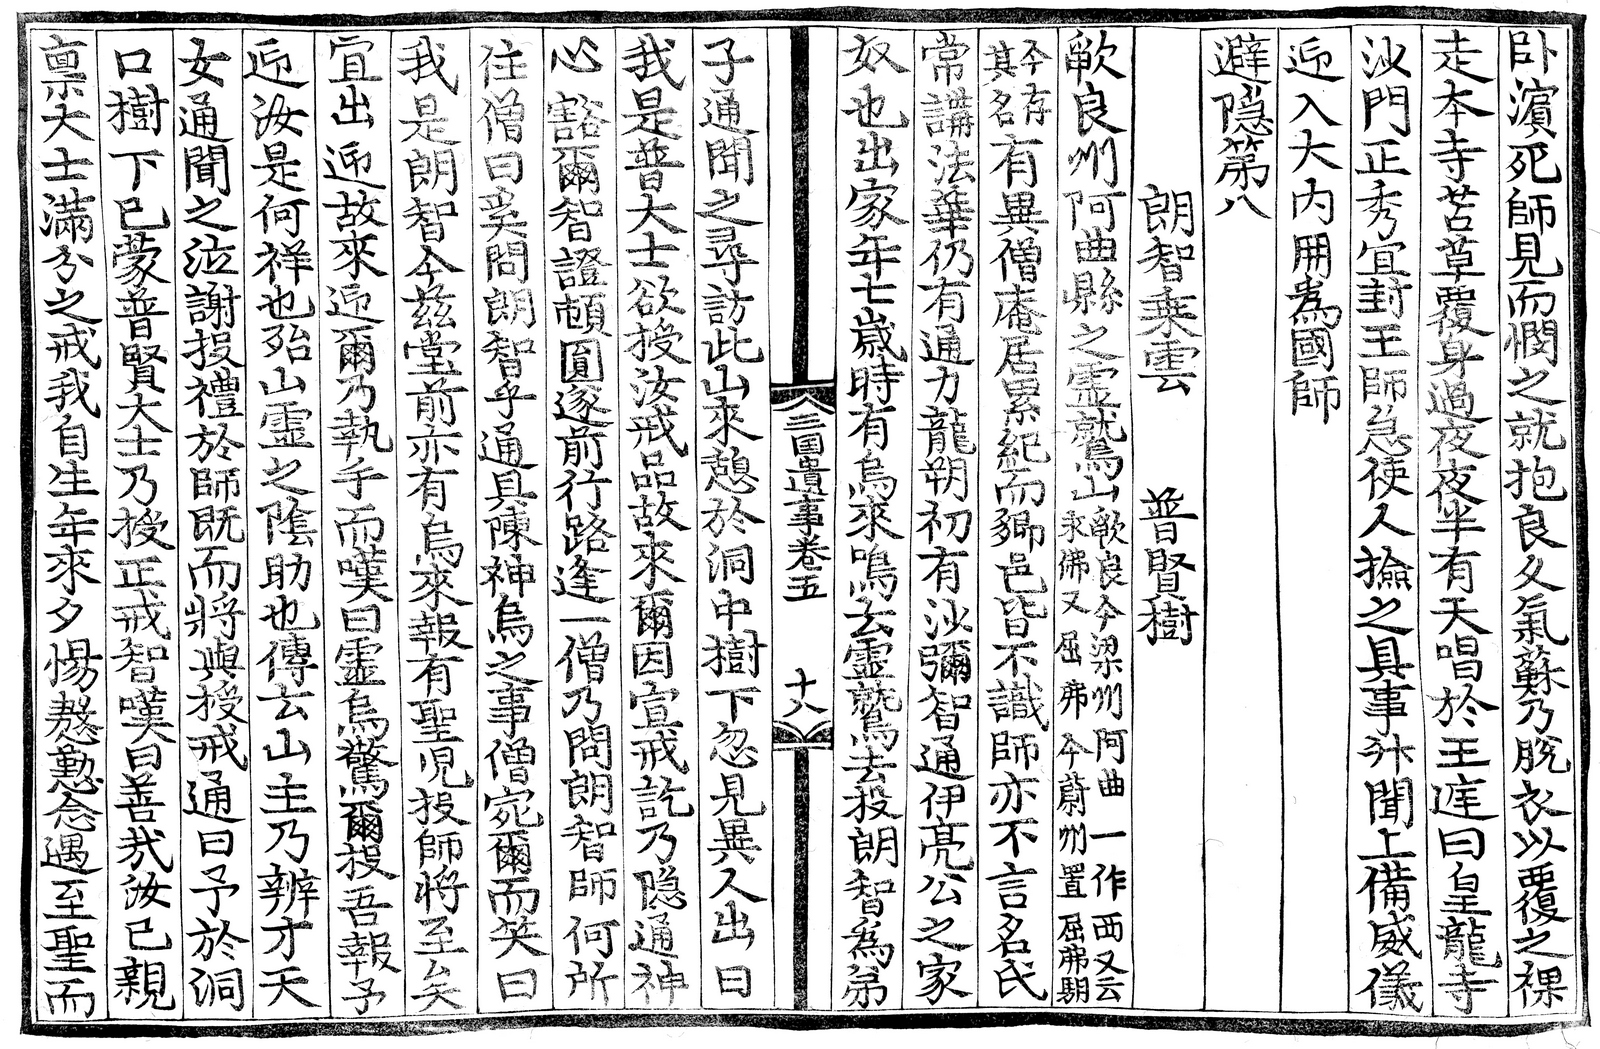 卧濵死師見而憫之就抱良久氣蘇乃脫衣以覆之裸
走本寺苫草覆身過夜夜半有天唱於王庭曰皇龍寺
沙門正秀宜封王師急使人撿之具事升聞上備威儀
迎入大內冊爲國師
避隱第八
朗智乗雲 普賢樹
歃良州阿曲縣之霊鷲山歃良今梁州阿曲一作西又云求佛又屈弗今蔚州置屈弗駅
今存其名有異僧庵居累紀而鄉邑皆不識師亦不言名氏
常講法華仍有通力龍朔初有沙彌智通伊亮公之家
奴也出家年七歲時有烏來鳴云霊鷲去投朗智爲弟
三国遺事卷五 十八
子通聞之尋訪此山來憩於洞中樹下忽見異人出曰
我是普大士欲授汝戒品故來爾因宣戒訖乃隠通神
心豁爾智證頓圓遂前行路逢一僧乃問朗智師何所
住僧曰奚問朗智乎通具陳神烏之事僧宛爾而笑曰
我是朗智今兹堂前亦有烏來報有聖児投師將至矣
宜出迎故來迎爾乃執手而嘆曰霊烏驚爾投吾報予
迎汝是何祥也殆山霊之隂助也傳云山主乃辨才天
女通聞之泣謝投禮於師既而將與授戒通曰予於洞
口樹下已蒙普賢大士乃授正戒智嘆曰善哉汝已親
禀大士滿分之戒我自生年來夕惕慇懃念遇至聖而